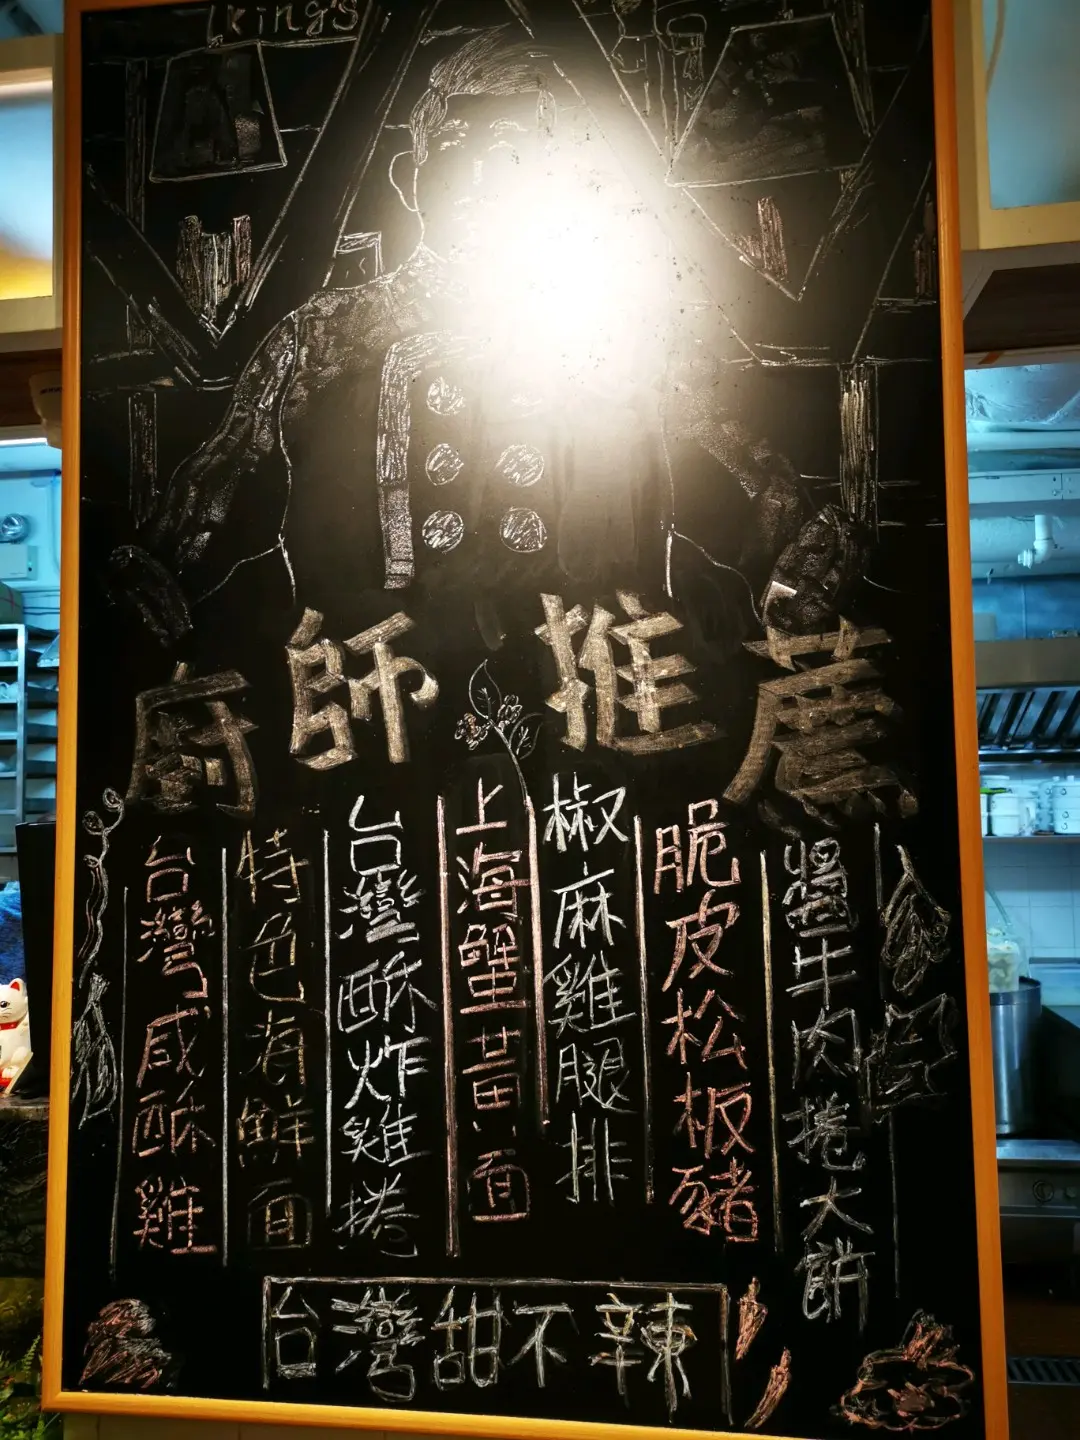 King's
廚師推薦
醬牛肉捲大餅
脆皮松板豬
椒麻雞腿排
上海蟹黃面
台灣酥炸雞捲
特色海鮮面
台灣咸酥雞
台灣甜不辣